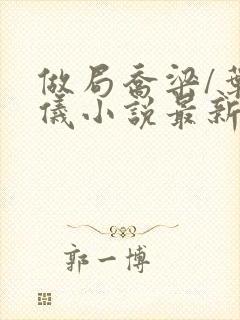 做局喬梁/葉
儀小説最新
郭一博